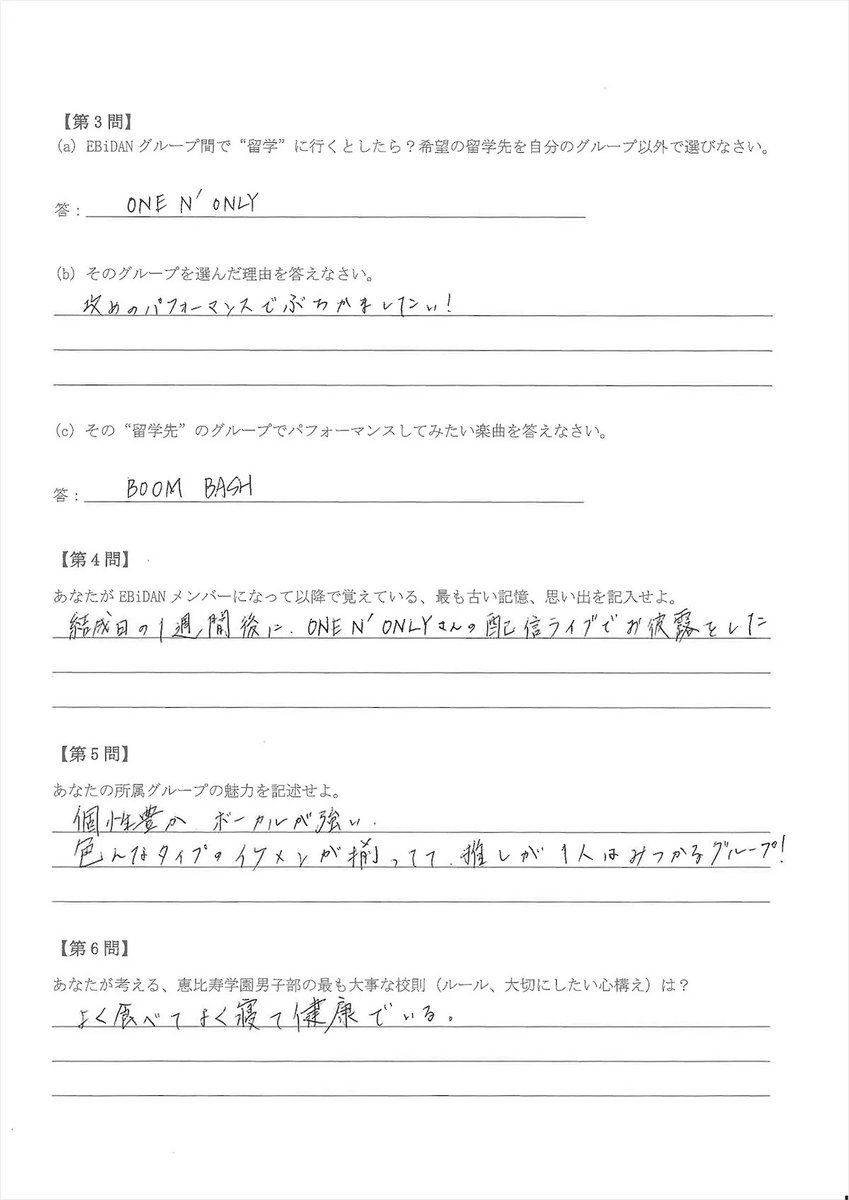 【第3問】
(a) EBiDAN グループ間で“留学”に行くとしたら？希望の留学先を自分のグループ以外で選びなさい。
答： ONE N' ONLY
(b) そのグループを選んだ理由を答えなさい。
攻めのパフォーマンスでぶちかましたい！
(c) その“留学先”のグループでパフォーマンスしてみたい楽曲を答えなさい。
答： BOOM BASH
【第4問】
あなたが EBiDAN メンバーになって以降で覚えている、最も古い記憶、思い出を記入せよ。
結成日の1週間後に、ONE N' ONLYさんの配信ライブでお披露をした
【第5問】
あなたの所属グループの魅力を記述せよ。
個性豊か ボーカルが強い、
色んなタイプのイケメンが揃ってて、推しが1人はみつかるグループ！
【第6問】
あなたが考える、恵比寿学園男子部の最も大事な校則（ルール、大切にしたい心構え）は？
よく食べてよく寝て健康でいる。